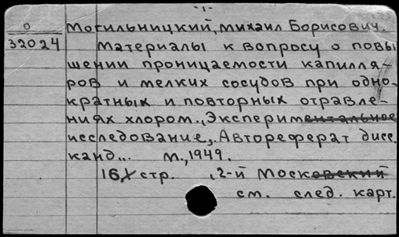 -1-
О Могильницкий, Михаил Борисович.
32024 Материалы к вопросу о повы-
шении проницаемости капилля-
ров и мелких сосудов при одно-
кратных и повторных отравле-
ниях хлором. „Экспериментальное
исследование„. Автореферат дисс.
канд... М., 1949.
16 стр. , 2-й Московский
см. след. карт.